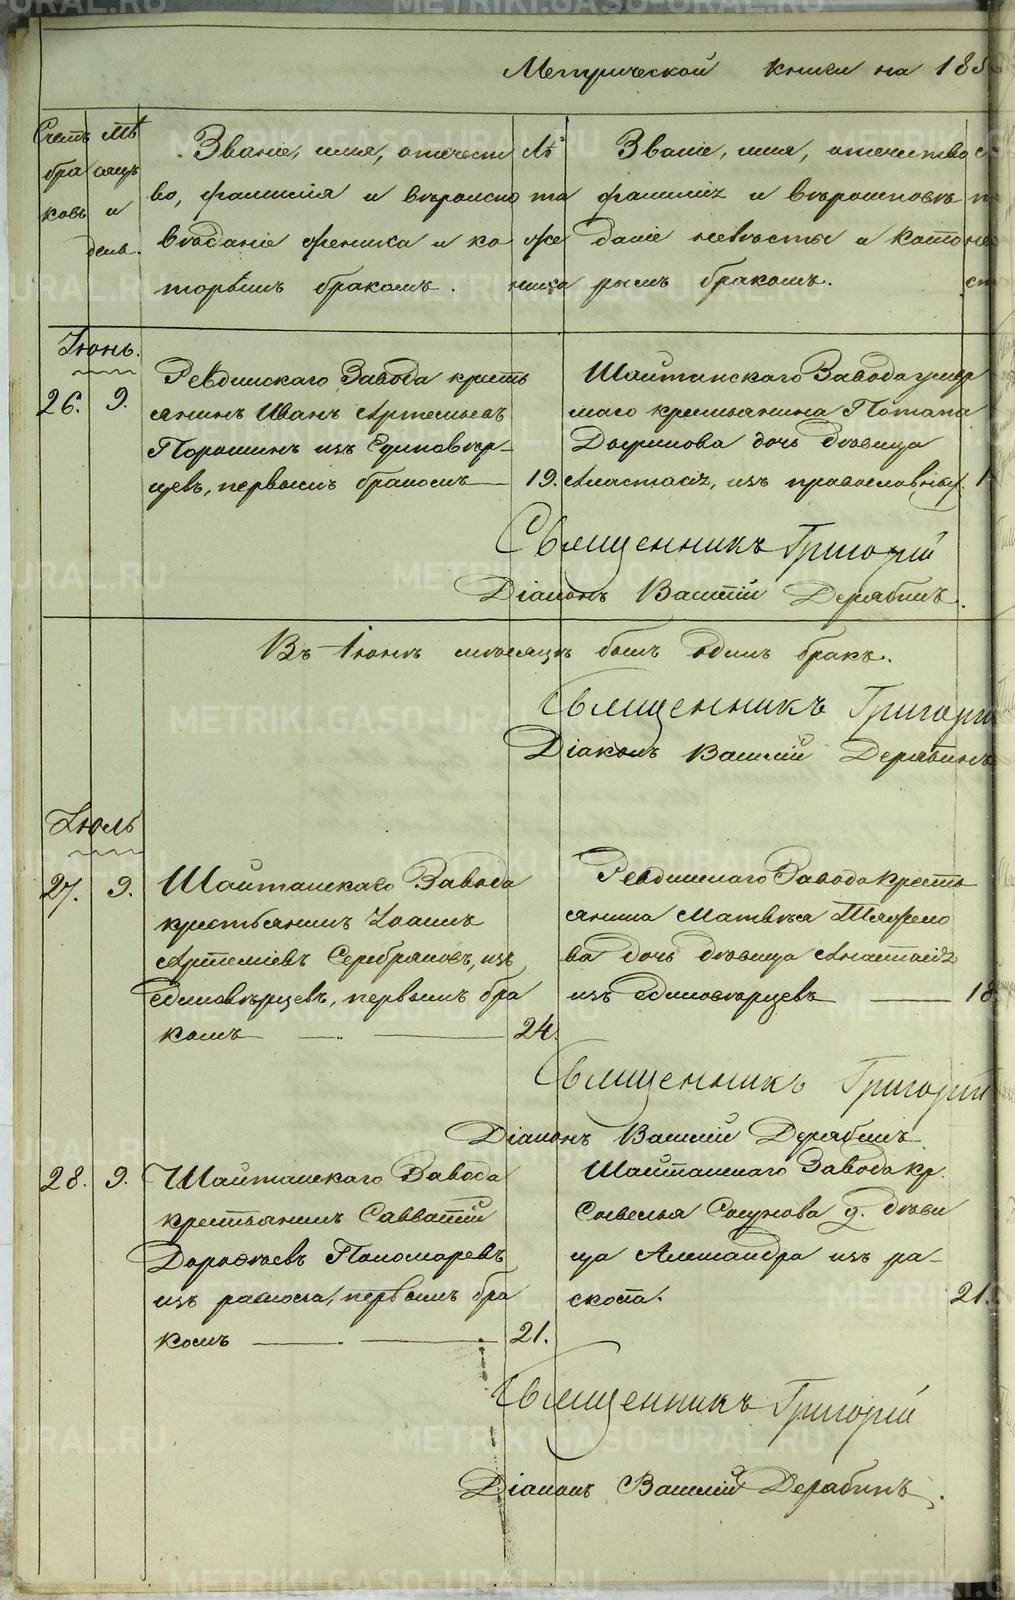 Метрической книги на 185
Счетъ браковъ
Мѣсяцъ и день.
Званіе, имя, отечест
во, фамилія и вѣроиспо
вѣданіе жениха и ко
торымъ бракомъ.
Лѣ
та
же
ниха
Званіе, имя, отечество
фамилія и вѣроисповѣ
даніе невѣсты и кото
рымъ бракомъ.
Іюнь.
26. 9.
Ревдинскаго Завода кресть
янинъ Иванъ Артемьевъ
Порошинъ изъ Единовѣр-
цевъ, первымъ бракомъ 19.
Шайтанскаго Завода умер
шаго крестьянина Потапа
дочь дѣвица
Анастасія, изъ православных.
Священникъ Григорій
Діаконъ Василій Дерябинъ.
Въ Іюнѣ мѣсяцѣ былъ одинъ бракъ.
Священникъ Григорій
Діаконъ Василій Дерябинъ
Іюль
27. 9.
Шайтанскаго Завода
крестьянинъ Іоаннъ
Артеміевъ Серебряковъ, изъ
Единовѣрцевъ, первымъ бра
комъ 24.
Ревдинскаго Завода кресть
янина Матвѣя
ва дочь дѣвица Анастасія
изъ единовѣрцевъ 18.
Священникъ Григорій
Діаконъ Василій Дерябинъ.
28. 9.
Шайтанскаго Завода
крестьянинъ Савватій
Дорофѣевъ Пономаревъ
изъ раскола, первымъ бра
комъ 21.
Шайтанскаго Завода кр.
Савелья Сосунова д. дѣви
ца Александра изъ ра-
скола. 21.
Священникъ Григорій
Діаконъ Василій Дерябинъ.
METRIKI.GASO-URAL.RU